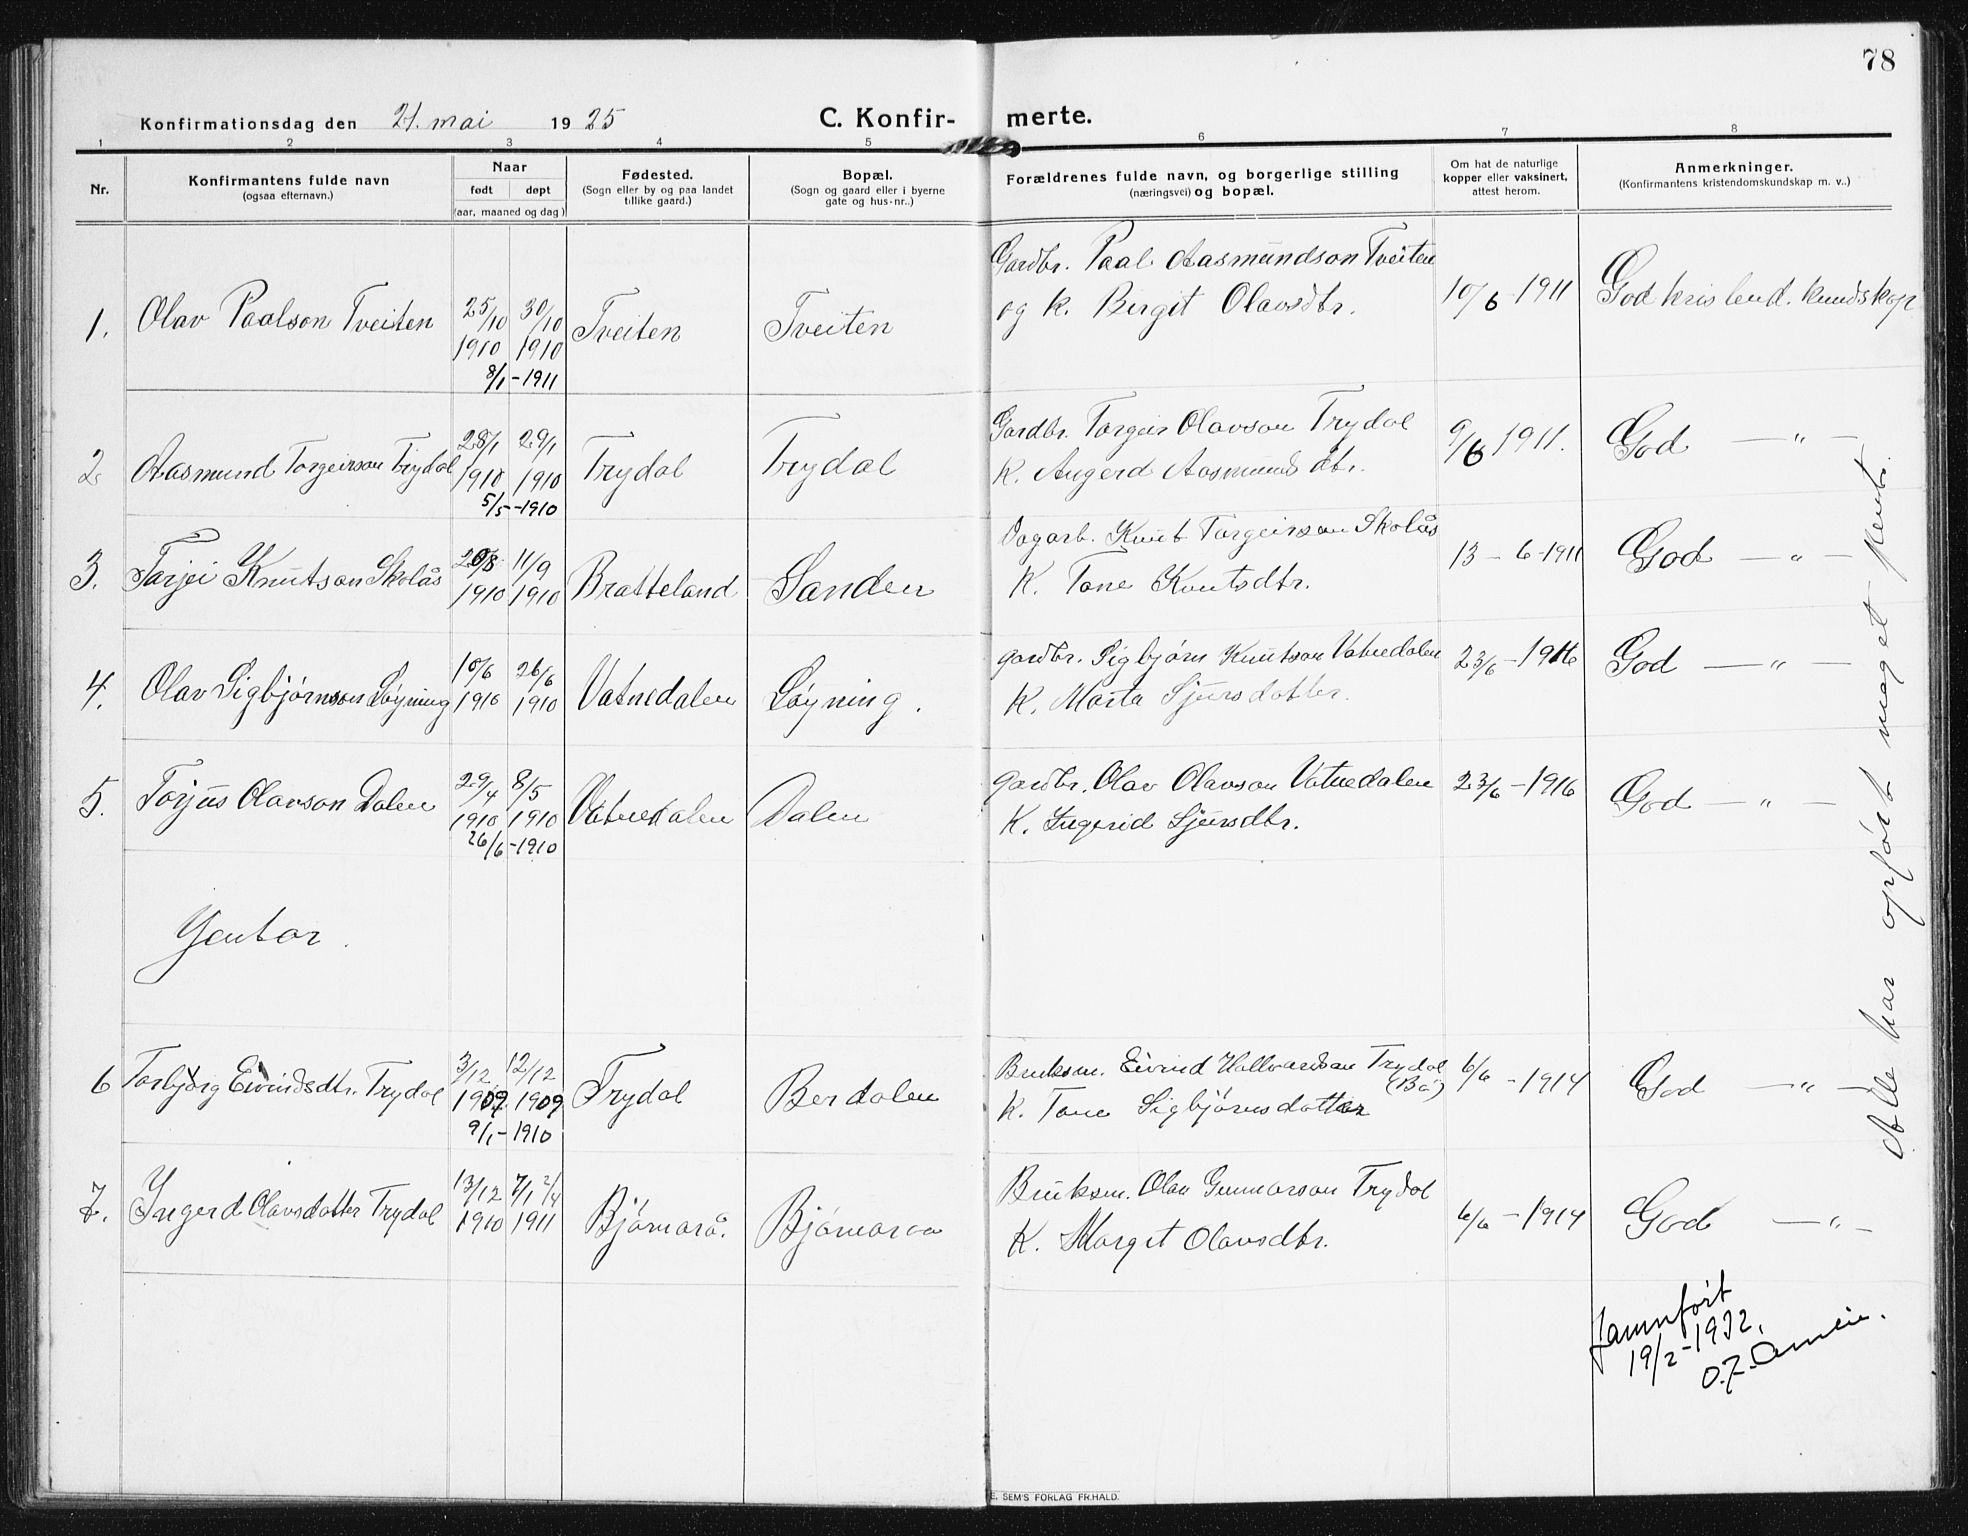 78
Konfirmationsdag den 21. mai 1925
C. Konfir- merte.
1 2 3 4 5 6 7 8
Nr.
Konfirmantens fulde navn
(ogsaa efternavn.)
Naar
født døpt
(aar, maaned og dag)
Fødested.
(Sogn eller by og paa landet
tillike gaard.)
Bopæl.
(Sogn og gaard eller i byerne
gate og hus-nr..)
Forældrenes fulde navn, og borgerlige stilling
(næringsvei) og bopæl.
Om hat de naturlige
kopper eller vaksinert,
attest herom.
Anmerkninger.
(Konfirmantens kristendomskundskap m. v..)
1. Olav Paalson Tveiten 25/10 1910 30/10 1910 8/1-1911 Tveiten Tveiten
Gardbr. Paal Aasmundson Tveiten
og k. Birgit Olavsdtr.
10/6-1911 God kristend. kundskap
2. Aasmund Torgeirson Trydal 28/1 1910 29/1 1910 5/5-1910 Trydal Trydal
Gardbr. Torgeir Olavson Trydal
K. Angerd Aasmundsdtr.
9/6 1911. God —"—
3. Tarjei Knutson Skolås 20/8 1910 11/9 1910 Bratteland Sanden
Dagarb. Knut Torgeirson Skolås
K. Tone Knutsdtr.
13-6-1911 God —"—
4. Olav Sigbjørnson Løyning 10/6 1910 26/6 1910 Vatnedalen Løyning.
gardbr. Sigbjørn Knutson Vatnedalen
K. Marta Sjursdotter.
23/6-1916 God —"—
5. Torjus Olavson Dalen 29/4 1910 8/5 1910 26/6-1910 Vatnedalen Dalen
gardbr. Olav Olavson Vatnedalen
K. Ingerid Sjursdtr.
23/6-1916 God —"—
Gentor.
6 Torbjørg Eivindsdtr. Trydal 3/12 1909 12/12 1909 9/1-1910 Trydal Berdalen
Bruksm. Eivind Hallvardson Trydal
(Bö)
K. Tone Sigbjørnsdotter
6/6-1914 God —"—
7. Ingerd Olavsdotter Trydal 13/12 1910 7/1 2/4 1911 Bjørnarå. Bjørnaraa
Bruksm. Olav Gunnarson Trydal
K. Marget Olavsdtr.
6/6-1914 God —"—
Alle har opført maget pent.
Jamnført
19/2-1932.
O.J.
E. SEM'S FORLAG FR.HALD.